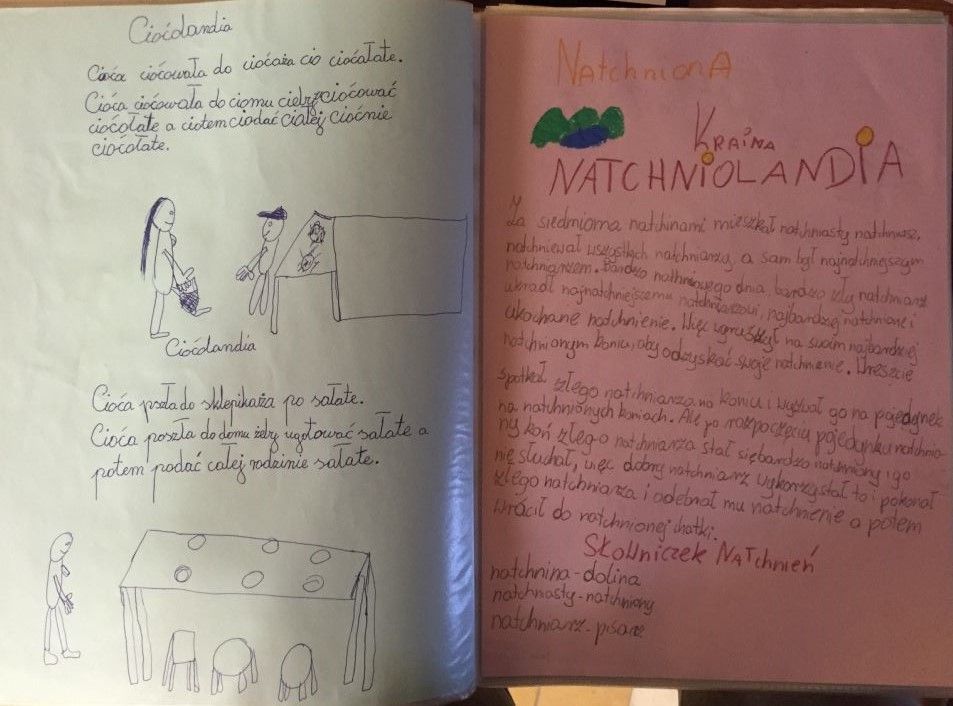 Cioćolandia
Cioća cioćowała do ciocaża cio ciocałate.
Cioća ciocowała do ciomu cieby ciocować
ciocołate a ciotem ciodać ciałej ciocnie
ciocołate.
Cioćolandia
Cioća poszła do sklepikaża po sałate.
Cioća poszła do domu żeby ugotować sałate a
potem podać całej rodzinie sałate.
NAtchnionA
KRAiNA
NATCHNiOLANDiA
Za siedmioma natchinami mieszkał natchniasty natchniusz,
natchniewał wszystkich natchniarzy, a sam był najnatchnejszym
natchniarzem. Bardzo nathniowego dnia, bardzo zły natchniarz
ukradł najnatchniejszemu natchniarzowi, najbardziej natchnione i
ukochane natchnienie. Więc wyruszył na swoim najbardziej
natchnionym koniu, aby odzyskać swoje natchnienie. Wreszcie
spotkał złego natchniarza na koniu i wyzwał go na pojedynek
na natchnionych koniach. Ale po rozpoczęciu pojedynku natchnio-
ny koń złego natchniarza stał siębardzo natchniony i go
nie słuchał, więc dobry natchniarz wykorzystał to i pokonał
złego natchniarza i odebrał mu natchnienie a potem
wrócił do natchnionej chatki.
SŁOWNiCZEK NATCHNiEń
natchnina - dolina
natchniasty - natchniony
natchniarz - pisarz